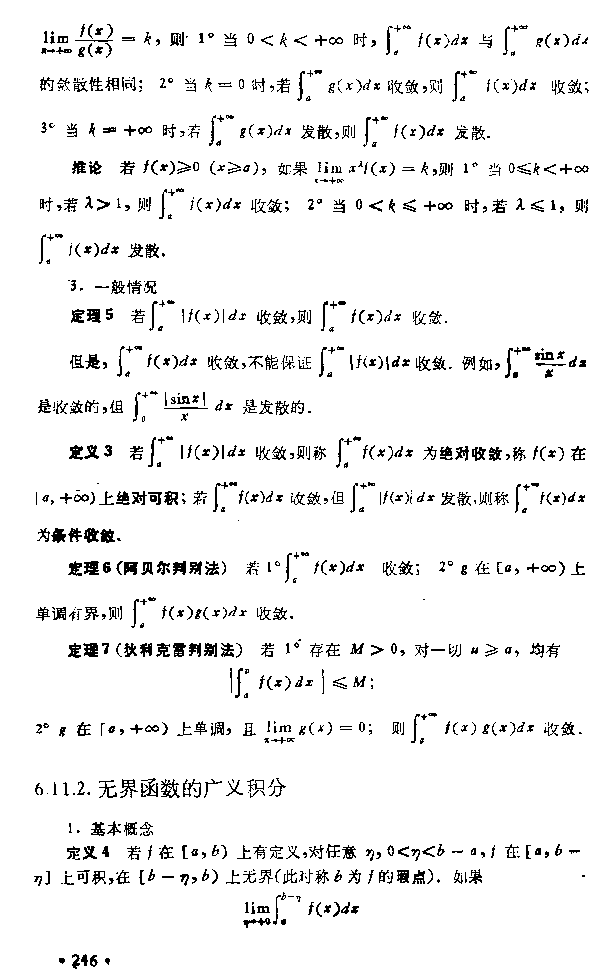 lim_{x→+∞} f(x)/g(x) = k，则 1° 当 0 < k < +∞ 时，∫_a^{+∞} f(x)dx 与 ∫_a^{+∞} g(x)dx
的敛散性相同； 2° 当 k = 0 时，若 ∫_a^{+∞} g(x)dx 收敛，则 ∫_a^{+∞} f(x)dx 收敛；
3° 当 k = +∞ 时，若 ∫_a^{+∞} g(x)dx 发散，则 ∫_a^{+∞} f(x)dx 发散．
推论 若 f(x)≥0 (x≥a)，如果 lim_{x→+∞} x^λ f(x) = k，则 1° 当 0≤k<+∞
时，若 λ>1，则 ∫_a^{+∞} f(x)dx 收敛； 2° 当 0 < k ≤ +∞ 时，若 λ ≤ 1，则
∫_a^{+∞} f(x)dx 发散．
3．一般情况
定理5 若 ∫_a^{+∞} |f(x)|dx 收敛，则 ∫_a^{+∞} f(x)dx 收敛．
但是，∫_a^{+∞} f(x)dx 收敛，不能保证 ∫_a^{+∞} |f(x)|dx 收敛．例如，∫_0^{+∞} sinx/x dx
是收敛的，但 ∫_0^{+∞} |sinx|/x dx 是发散的．
定义3 若 ∫_a^{+∞} |f(x)|dx 收敛，则称 ∫_a^{+∞} f(x)dx 为绝对收敛，称 f(x) 在
[a, +∞)上绝对可积；若 ∫_a^{+∞} f(x)dx 收敛，但 ∫_a^{+∞} |f(x)|dx 发散，则称 ∫_a^{+∞} f(x)dx
为条件收敛．
定理6（阿贝尔判别法） 若 1° ∫_a^{+∞} f(x)dx 收敛； 2° g 在 [a, +∞) 上
单调有界，则 ∫_a^{+∞} f(x)g(x)dx 收敛．
定理7（狄利克雷判别法） 若 1° 存在 M > 0，对一切 u ≥ a，均有
|∫_a^u f(x)dx| ≤ M；
2° g 在 [a, +∞) 上单调，且 lim_{x→+∞} g(x) = 0； 则 ∫_a^{+∞} f(x)g(x)dx 收敛．
6.11.2. 无界函数的广义积分
1．基本概念
定义4 若 f 在 [a, b) 上有定义，对任意 η, 0<η<b − a, f 在 [a, b −
η] 上可积，在 [b − η, b) 上无界(此时称 b 为 f 的瑕点)．如果
lim_{η→+0} ∫_a^{b−η} f(x)dx
• 246 •